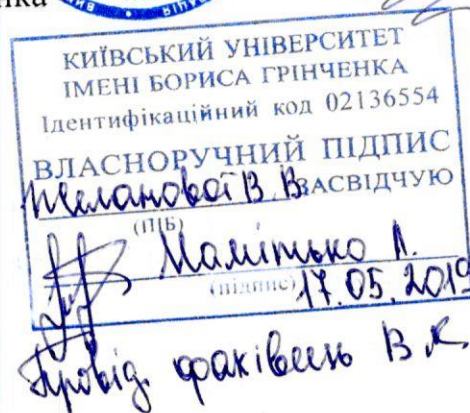 нка
КИЇВСЬКИЙ УНІВЕРСИТЕТ
ІМЕНІ БОРИСА ГРІНЧЕНКА
Ідентифікаційний код 02136554
ВЛАСНОРУЧНИЙ ПІДПИС
Желанової В.В. ЗАСВІДЧУЮ
(ПІБ)
Мамітько Л.
(підпис) 17.05.2019
Провід. фахівець В К